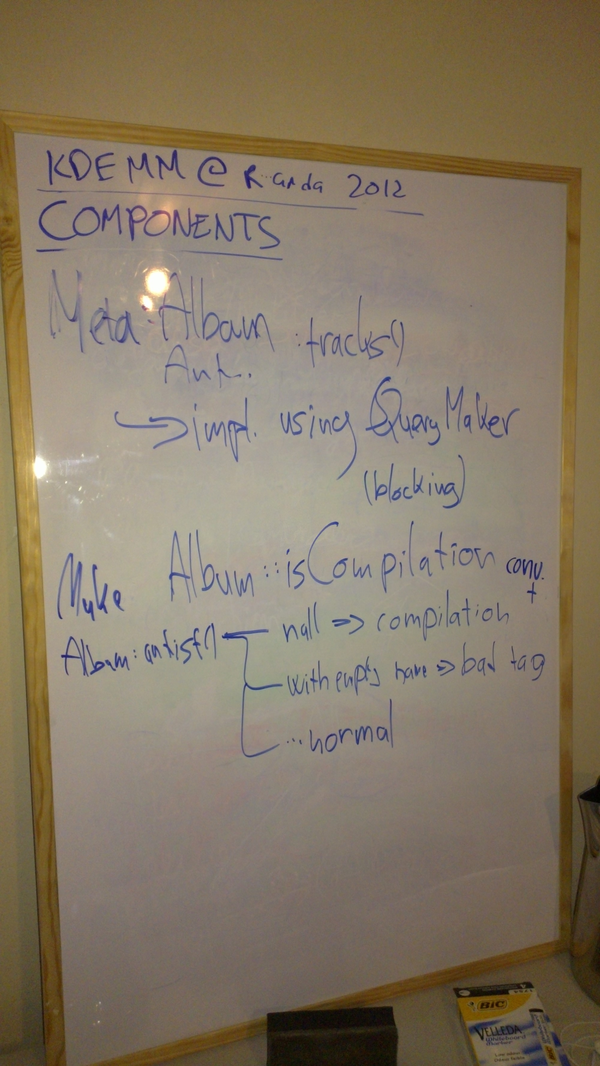 KDEMM @ Randa 2012
COMPONENTS
Meta::Album ::tracks()
Art..
↳ impl. using QueryMaker
(blocking)
Make Album::isCompilation conv. +
Album::artist() null => compilation
with empty name => bad tag
...normal
BIC
VELLEDA
Whiteboard
Marker